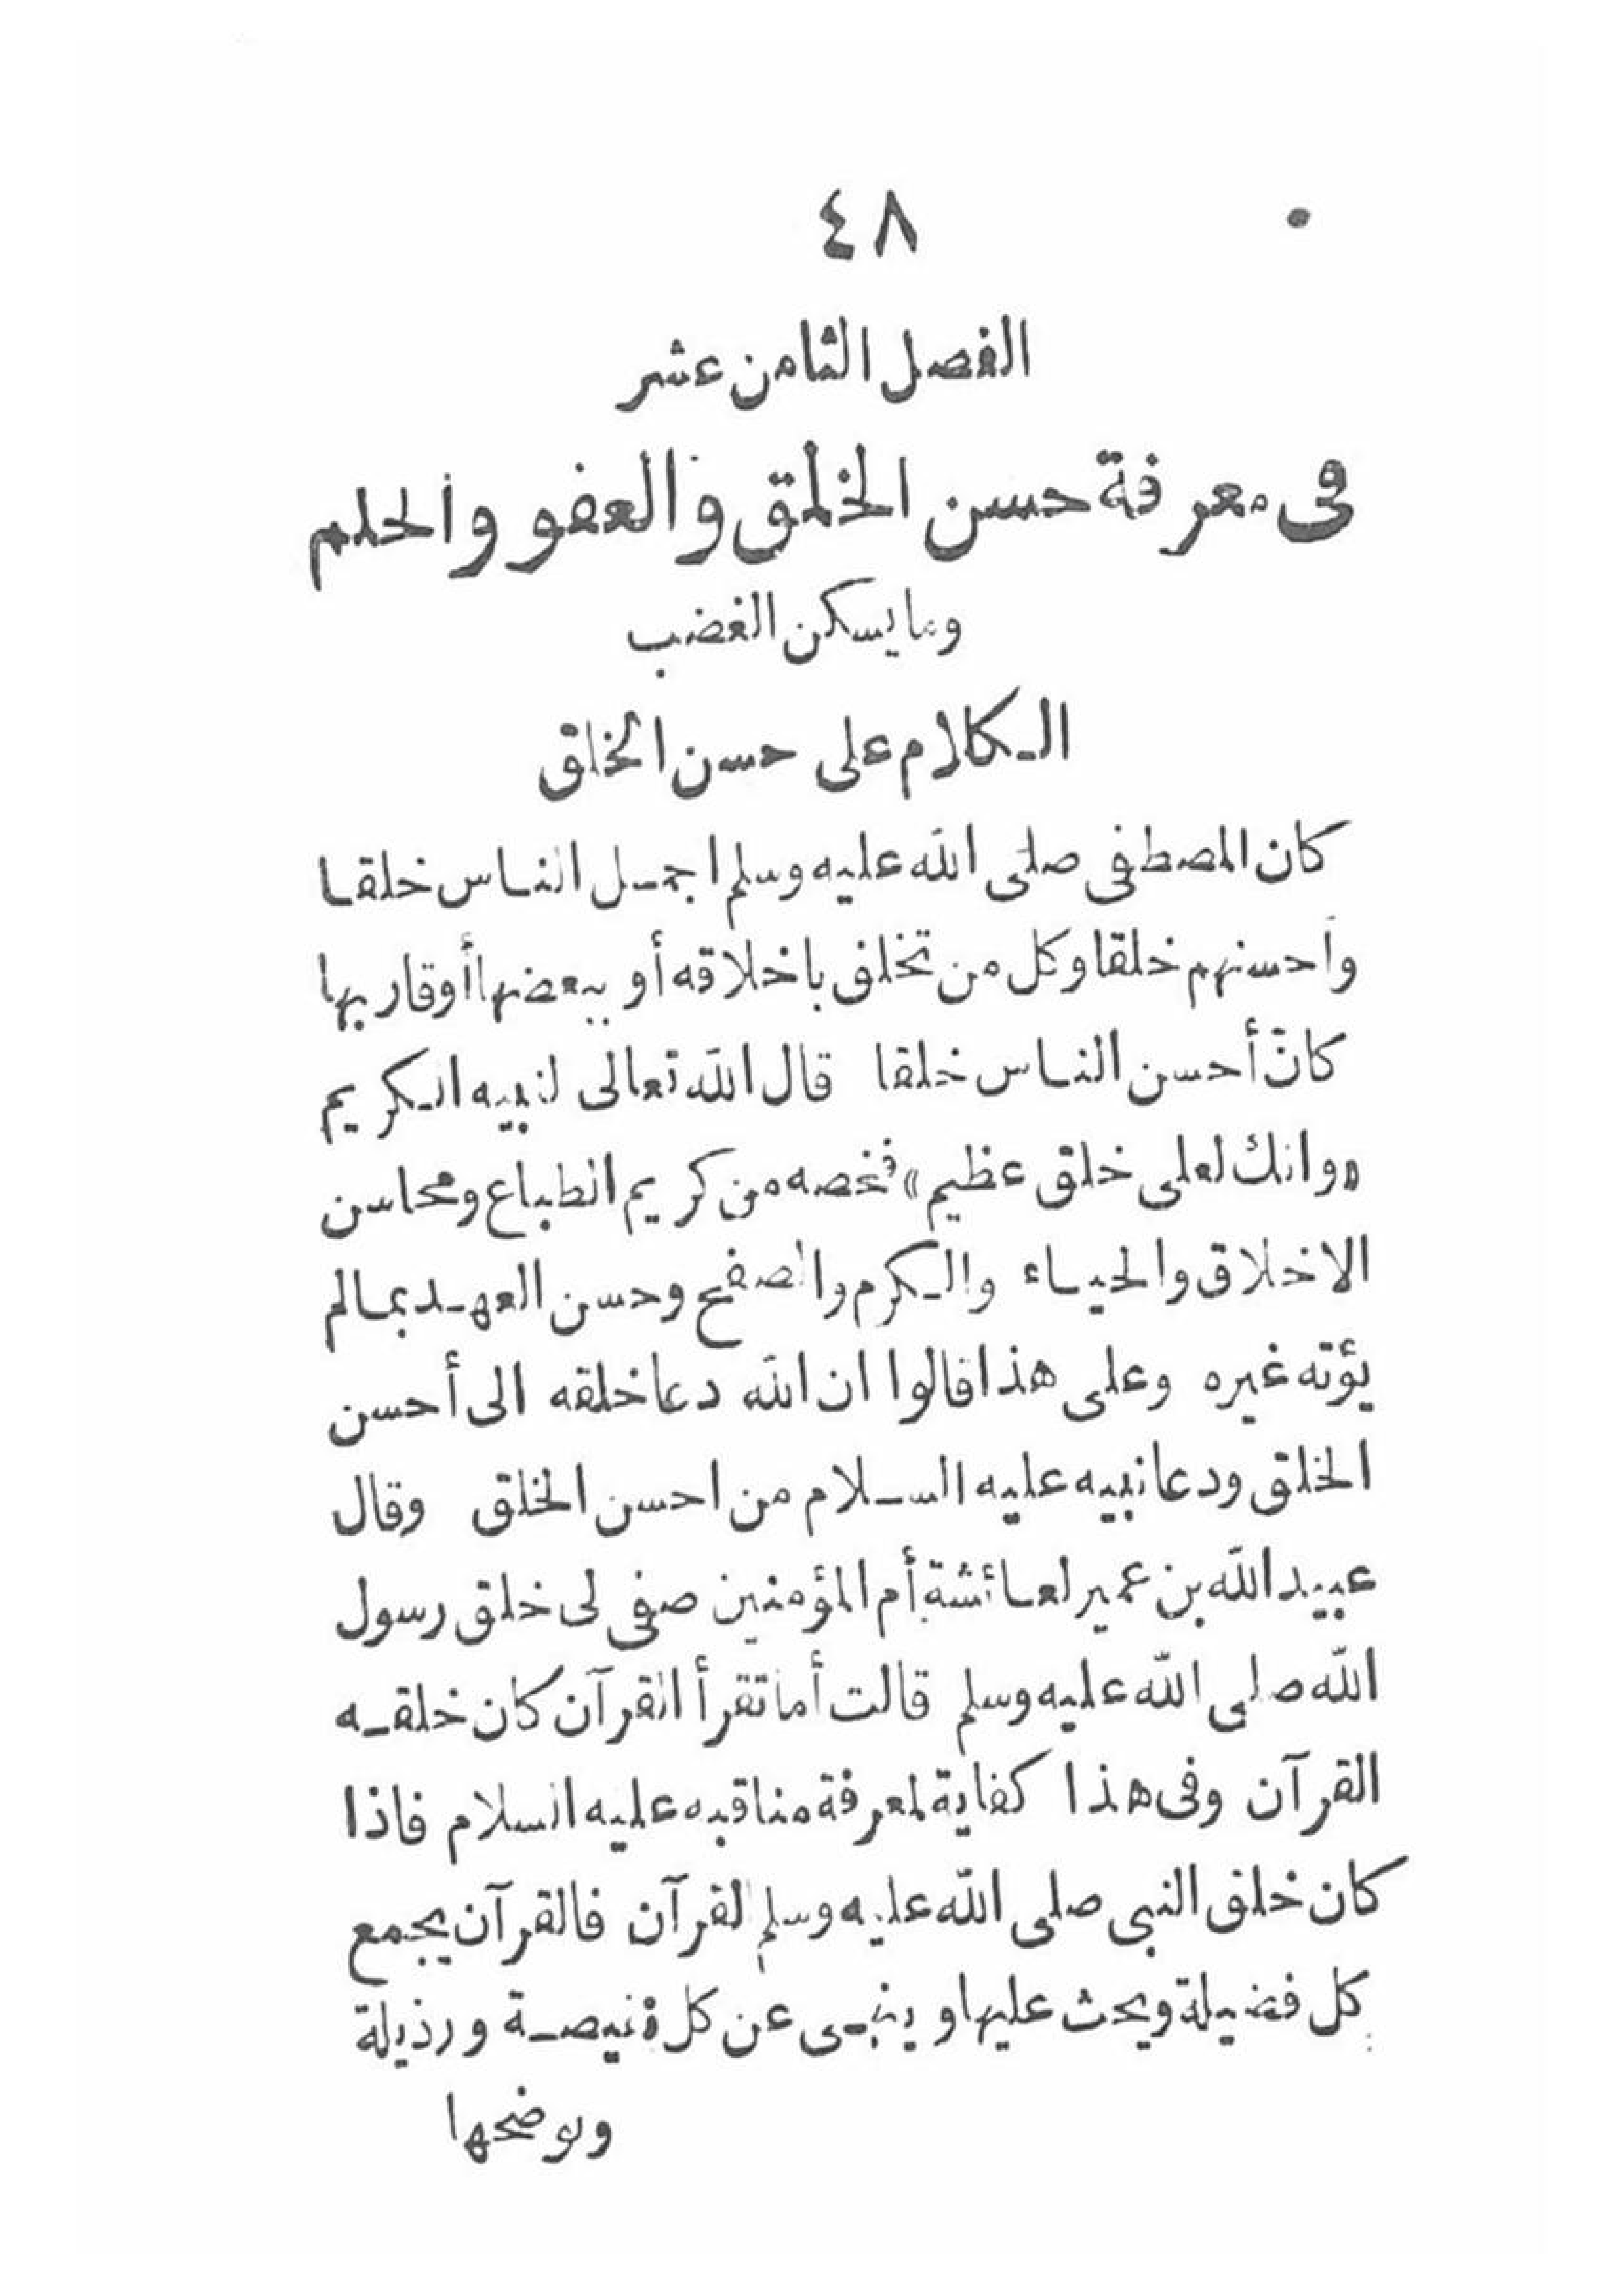 ٤٨
الفصل الثامن عشر
فى معرفة حسن الخلق والعفو والحلم
وما يسكن الغضب
الكلام على حسن الخلق
كان المصطفى صلى الله عليه وسلم اجمل الناس خلقا
وأحسنهم خلقا وكل من تخلق باخلاقه أو ببعضها أوقار بها
كان أحسن الناس خلقا قال الله تعالى لنبيه الكريم
«وانك لعلى خلق عظيم» فخصه من كريم الطباع ومحاسن
الاخلاق والحياء والكرم والصفح وحسن العهد بمالم
يؤته غيره وعلى هذا قالوا ان الله دعا خلقه الى أحسن
الخلق ودعا نبيه عليه السلام من احسن الخلق وقال
عبيد الله بن عمير لعائشة أم المؤمنين صفى لى خلق رسول
الله صلى الله عليه وسلم قالت أما تقرأ القرآن كان خلقه
القرآن وفى هذا كفاية لمعرفة مناقبه عليه السلام فاذا
كان خلق النبى صلى الله عليه وسلم القرآن فالقرآن يجمع
كل فضيلة ويحث عليها وينهى عن كل نقيصة ورذيلة
ويوضحها